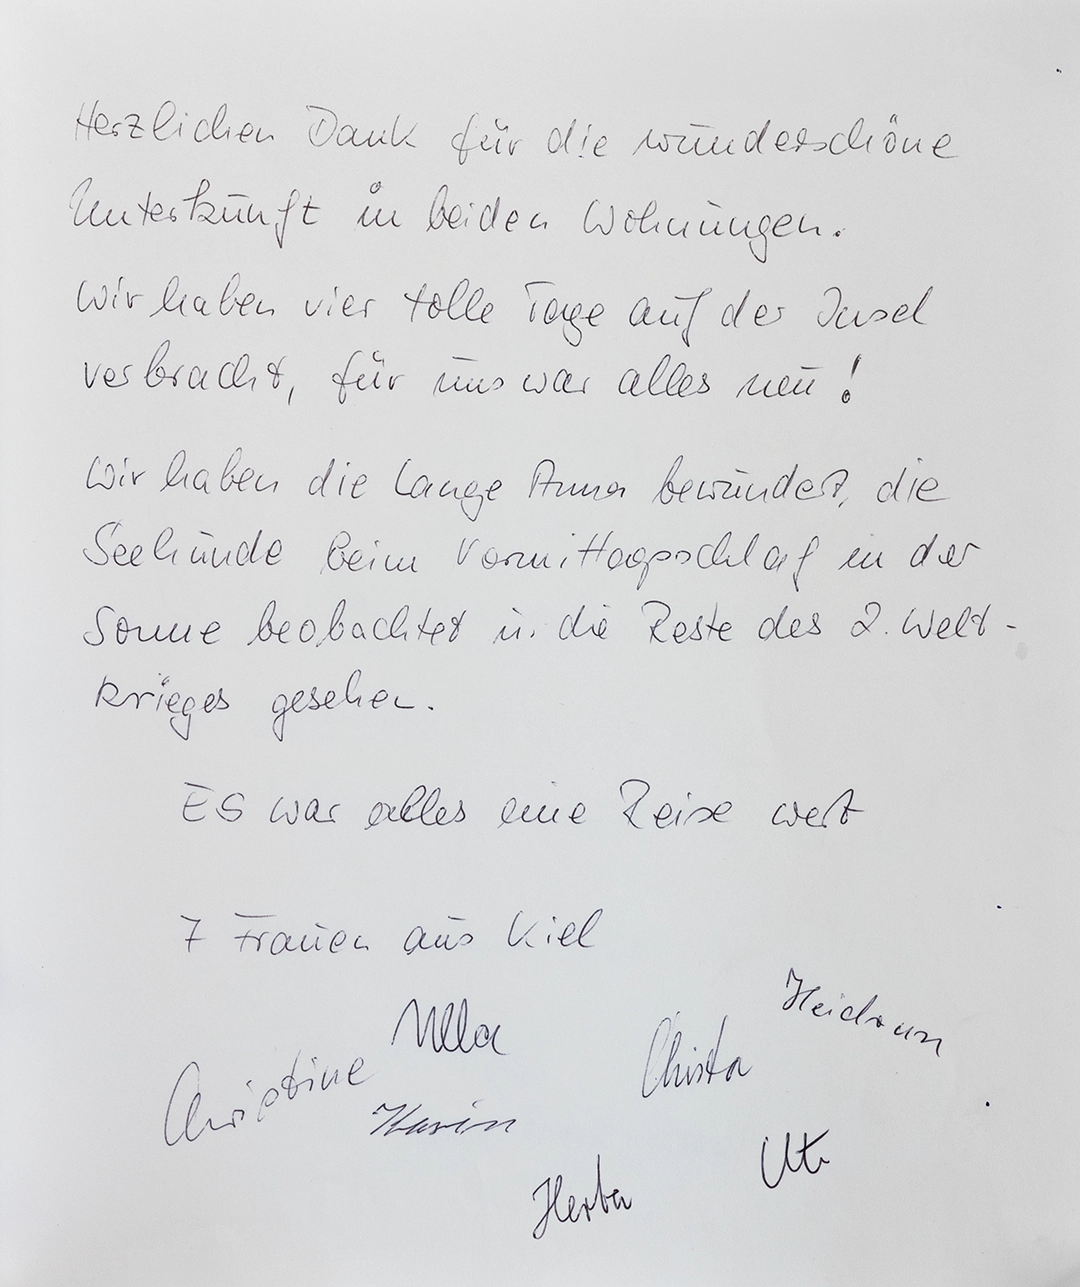 Herzlichen Dank für die wunderschöne
Unterkunft in beiden Wohnungen.
Wir haben vier tolle Tage auf der Insel
verbracht, für uns war alles neu!
Wir haben die Lange Anna bewundert, die
Seehunde beim Vormittagsschlaf in der
Sonne beobachtet u. die Reste des 2. Welt-
krieges gesehen.
Es war alles eine Reise wert
7 Frauen aus Kiel
Heidrun
Ulla
Christa
Christine
Karin
Ute
Herta